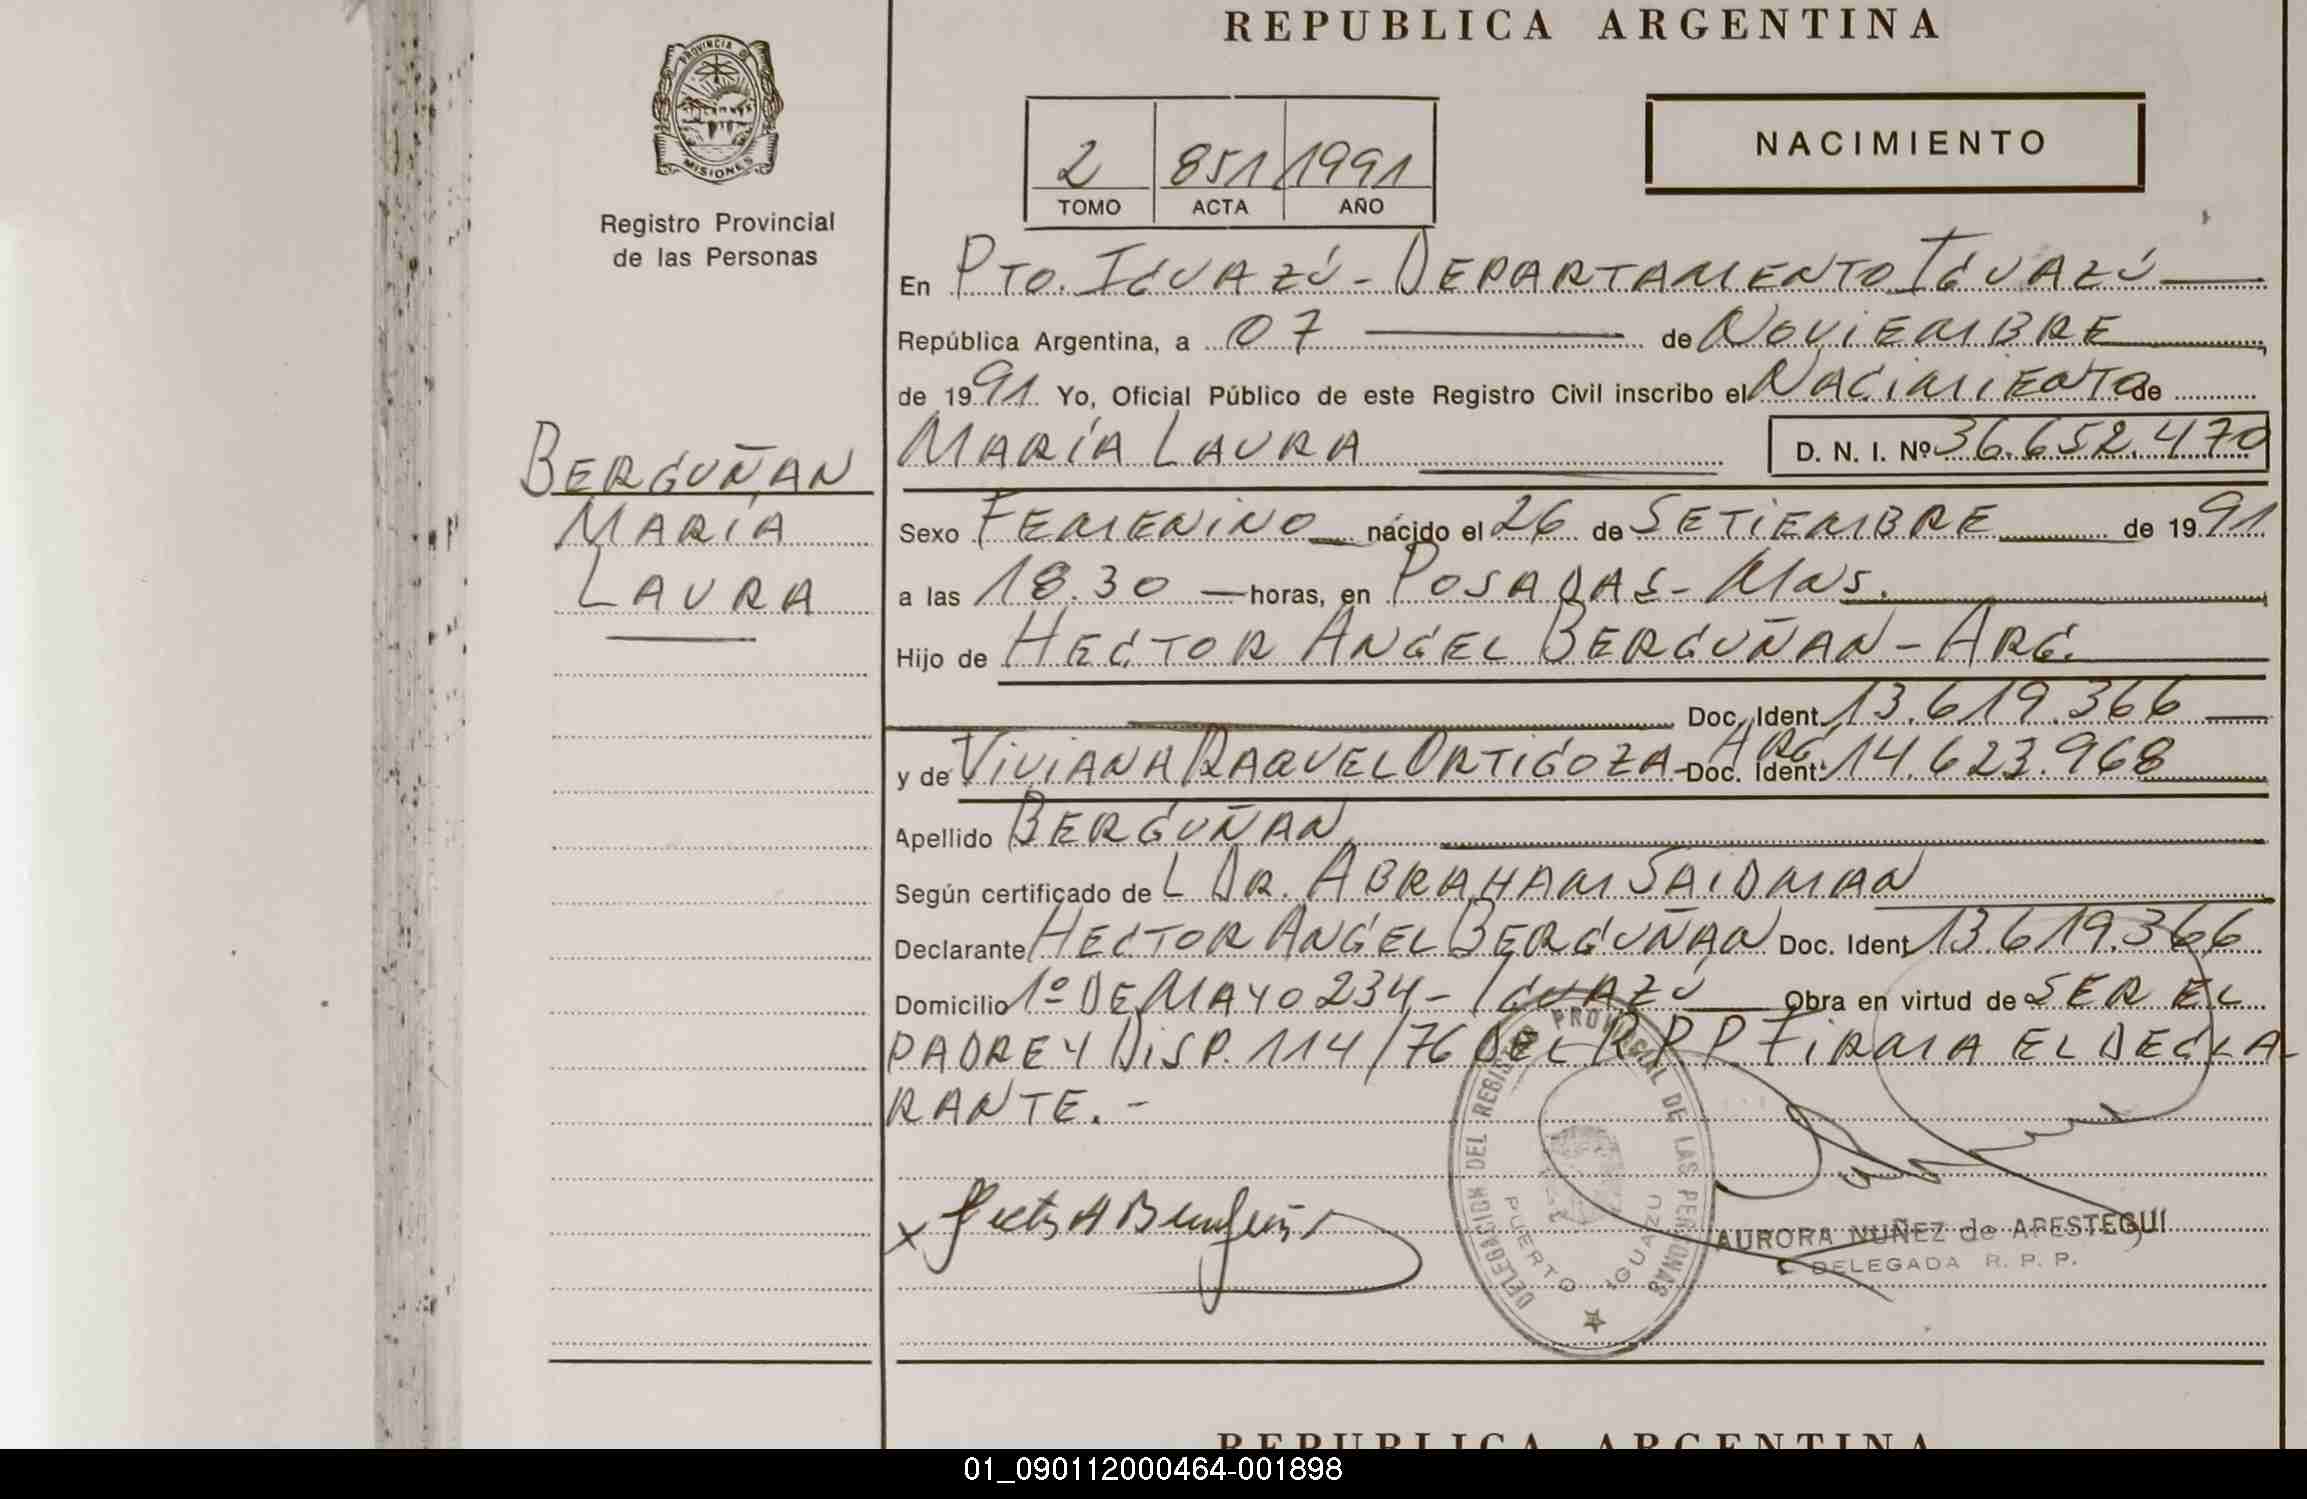 REPUBLICA ARGENTINA
PROVINCIA DE
MISIONES
Registro Provincial
de las Personas
2 851 1991
TOMO ACTA AÑO
NACIMIENTO
En PTO. IGUAZÚ - DEPARTAMENTO IGUAZÚ
República Argentina, a 07 de NOVIEMBRE
de 1991 Yo, Oficial Público de este Registro Civil inscribo el NACIMIENTO de
MARÍA LAURA D. N. I. Nº 36.652.470
BERGUÑAN
MARÍA
LAURA
Sexo FEMENINO nacido el 26 de SETIEMBRE de 1991
a las 18.30 horas, en POSADAS - MNS.
Hijo de HECTOR ANGEL BERGUÑAN - ARG.
Doc. Ident. 13.619.366
y de VIVIANA RAQUEL ORTIGOZA - ARG. Doc. Ident. 14.623.968
Apellido BERGUÑAN
Según certificado de L DR. ABRAHAM SAIDMAN
Declarante HECTOR ANGEL BERGUÑAN Doc. Ident 13.619.366
Domicilio 1º DE MAYO 234 - IGUAZÚ Obra en virtud de SER EL
PADRE Y DISP. 114/76 DEL R.P.P FIRMA EL DECLA-
RANTE. -
DELEGACION DEL REGISTRO PROVINCIAL DE LAS PERSONAS
PUERTO IGUAZU
x Hector A Berguñan
AURORA NUÑEZ de APESTEGUI
DELEGADA R. P. P.
REPUBLICA ARGENTINA
01_090112000464-001898